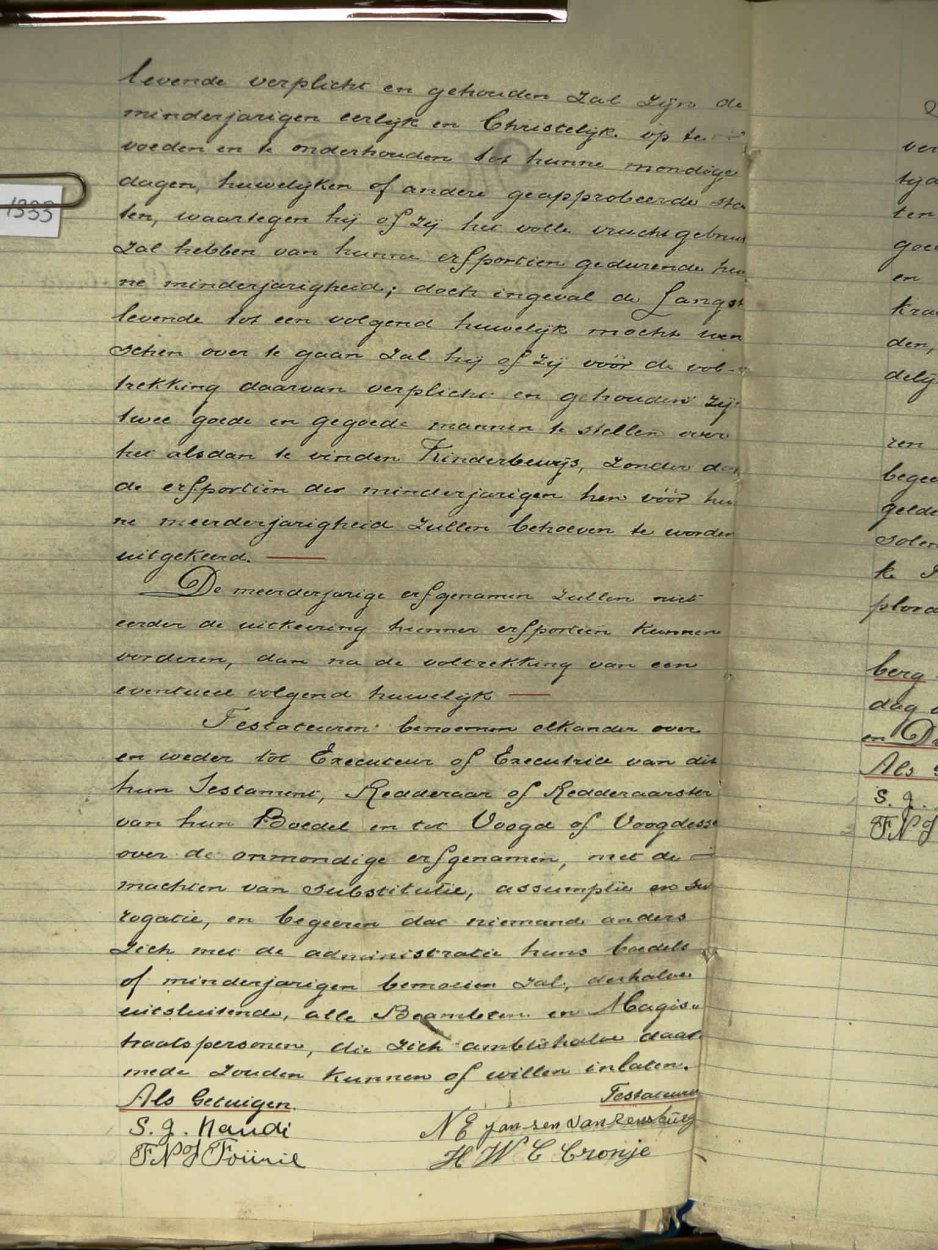 1333
levende verplicht en gehouden zal zijn de
minderjarigen eerlijk en Christelijk op te
voeden en te onderhouden tot hunne mondige
dagen, huwelijken of andere geapprobeerde sta
ten, waartegen hij of zij het volle vruchtgebrui
zal hebben van hunne erfportien gedurende hun
ne minderjarigheid; doch ingeval de Langst
levende tot een volgend huwelijk mocht wen
schen over te gaan zal hij of zij vóór de vol-
trekking daarvan verplicht en gehouden zij
twee goede en gegoede mannen te stellen over
het alsdan te vinden Kinderbewijs, zonder dat
de erfportiën der minderjarigen hen vóór hun
ne meerderjarigheid zullen behoeven te worden
uitgekeerd.
De meerderjarige erfgenamen zullen niet
eerder de uitkeering hunner erfportiën kunnen
vorderen, dan na de voltrekking van een
eventueel volgend huwelijk
Testateuren benoemen elkander over
en weder tot Executeur of Executrice van dit
hun Testament, Redderaar of Redderaarster
van hun Boedel en tot Voogd of Voogdesse
over de onmondige erfgenamen, met de
machten van substitutie, assumptie en Su
rogatie, en begeeren dat niemand anders
zich met de administratie huns boedels
of minderjarigen bemoeien zal, derhalve
uitsluitende, alle Beambten en Magis-
traatspersonen, die zich ambtshalve daar
mede zouden kunnen of willen inlaten.
Als Getuigen. Testateuren
S. J. Naudi N E Jansen van Rensburg
F N J Fourie H W C Cronje
ver
tyd
ten
goe
en
kra
den,
delij
ren
begee
gelde
solem
te
plora
berg
dag
en
Als
S. J.
F N J